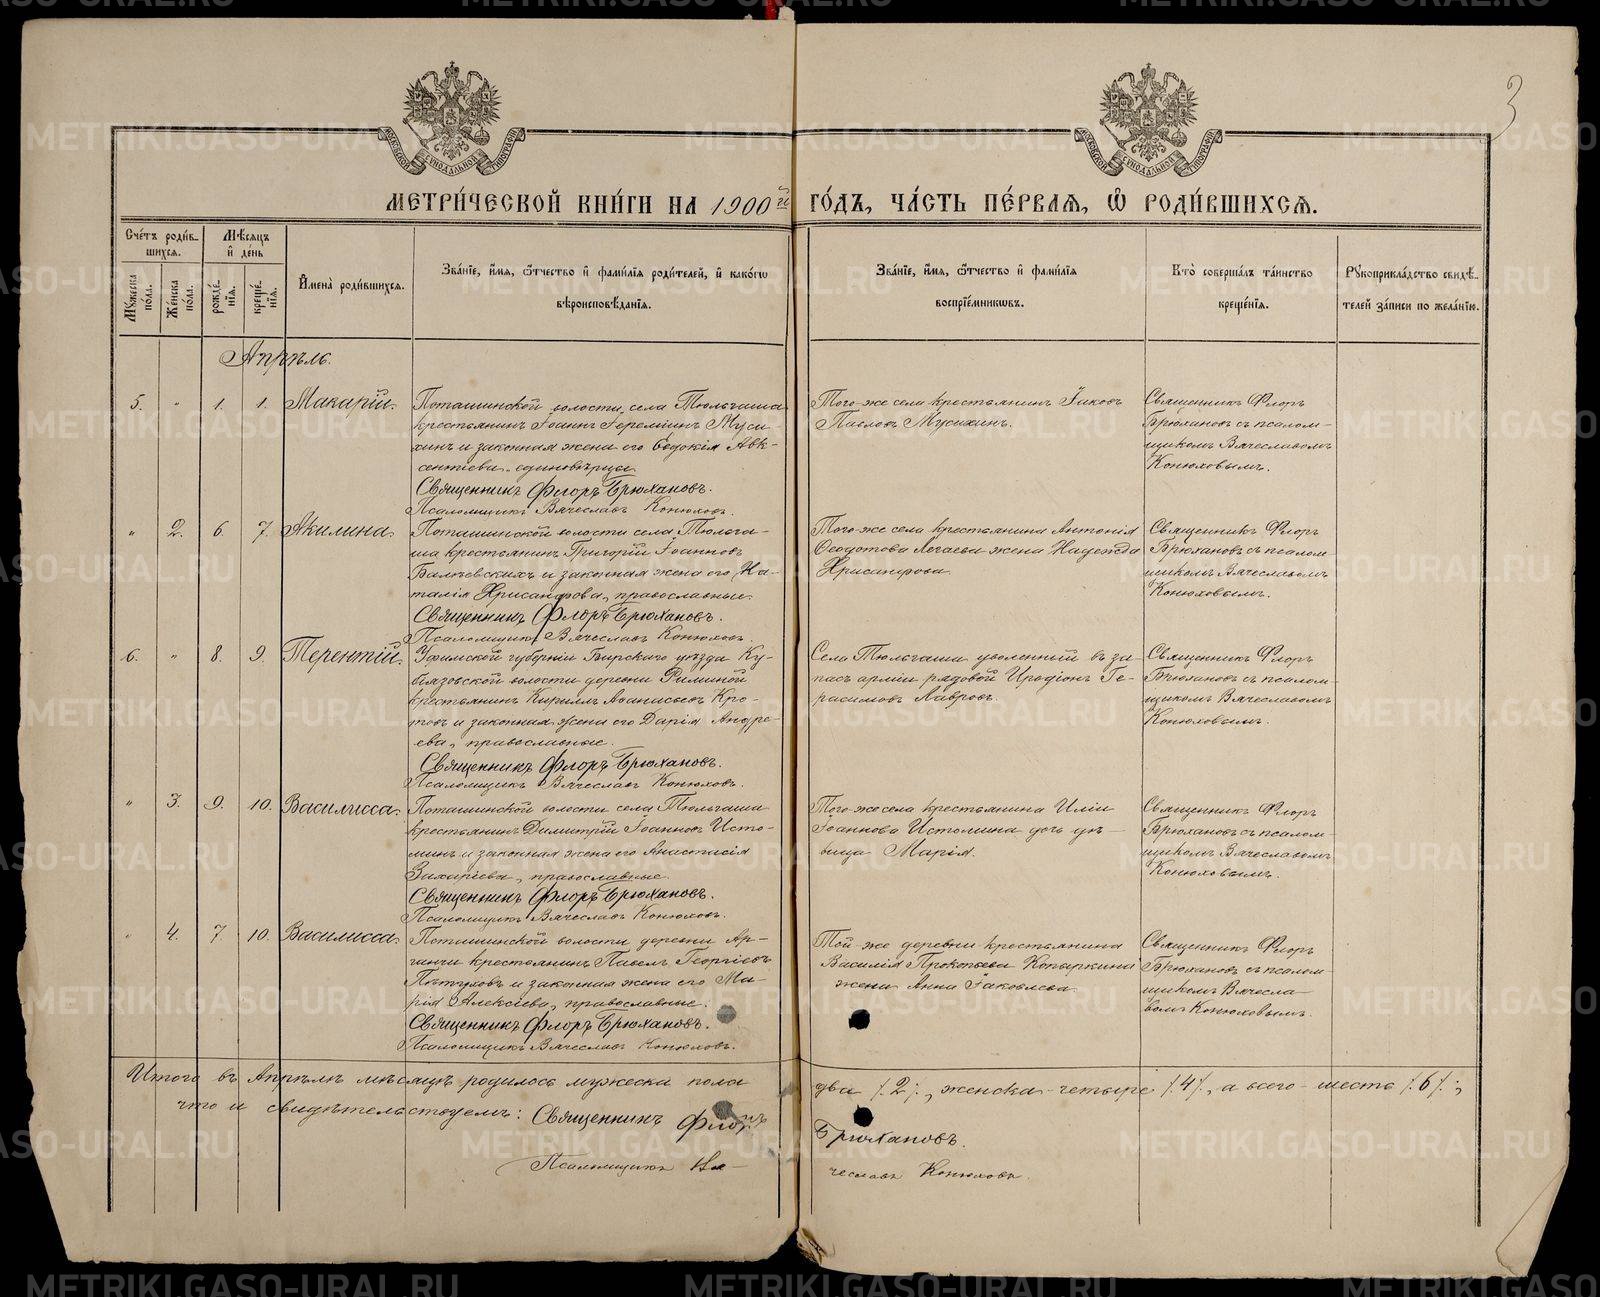 3
МЕТРИ́ЧЕСКОЙ КНИ́ГИ НА 1900й ГО́ДЪ, ЧА́СТЬ ПЕ́РВАЯ, Ѡ РОДИ́ВШИХСЯ.
Сче́тъ роди́в-
шихся.
Му́жеска по́ла.
Же́нска по́ла.
Мѣ́сяцъ
и де́нь
рожде́-
нія.
креще́-
нія.
Имена̀ роди́вшихся.
Зва́ніе, и́мя, ѻ́тчество и фами́лія роди́телей, и како́гѡ
вѣроисповѣ́данія.
Зва́ніе, и́мя, ѻ́тчество и фами́лія
воспріе́мникѡвъ.
Кто̀ соверша́лъ та́инство
креще́нія.
Рукоприкла́дство свидѣ́-
телей за́писи по жела́нію.
Апрѣль.
5. " 1. 1. Макарій.
Поташинской волости, села Тюльгаша
крестьянинъ Іоаннъ Іереміинъ Муси-
хинъ и законная жена его Евдокія Авк-
сентіева, единовѣрцы.
Священникъ Флоръ Брюхановъ.
Псаломщикъ Вячеславъ Конюховъ.
Того-же села крестьянинъ Іаковъ
Павловъ Мусихинъ.
Священникъ Флоръ
Брюхановъ съ псалом-
щикомъ Вячеславомъ
Конюховымъ.
" 2. 6. 7. Акилина.
Поташинской волости села Тюльга-
ша крестьянинъ Григорій Іоанновъ
и законная жена его На-
талія Хрисанфова, православные.
Священникъ Флоръ Брюхановъ.
Псаломщикъ Вячеславъ Конюховъ.
Того-же села крестьянина Антонія
Ѳеодотова жена Надежда
Хрисанфова.
Священникъ Флоръ
Брюхановъ съ псалом-
щикомъ Вячеславомъ
Конюховымъ.
6. " 8. 9. Терентій.
Уфимской губерніи Бирскаго уѣзда Ку-
біязовской волости деревни
крестьянинъ Кириллъ Аѳанасьевъ Кро-
товъ и законная жена его Дарія Андре-
ева, православные.
Священникъ Флоръ Брюхановъ.
Псаломщикъ Вячеславъ Конюховъ.
Села Тюльгаша уволенный въ за-
пасъ арміи рядовой Иродіонъ Ге-
расимовъ Лавровъ.
Священникъ Флоръ
Брюхановъ съ псалом-
щикомъ Вячеславомъ
Конюховымъ.
" 3. 9. 10. Василисса.
Поташинской волости села Тюльгаша
крестьянинъ Димитрій Іоанновъ Исто-
минъ и законная жена его Анастасія
Захаріева, православные.
Священникъ Флоръ Брюхановъ.
Псаломщикъ Вячеславъ Конюховъ.
Того-же села крестьянина Иліи
Іоаннова Истомина дочь дѣ-
вица Марія.
Священникъ Флоръ
Брюхановъ съ псалом-
щикомъ Вячеславомъ
Конюховымъ.
" 4. 7. 10. Василисса.
Поташинской волости деревни Ар-
ганчи крестьянинъ Павелъ Георгіевъ
Пѣтуховъ и законная жена его Ма-
рія Алексіева, православные.
Священникъ Флоръ Брюхановъ.
Псаломщикъ Вячеславъ Конюховъ.
Той-же деревни крестьянина
Василія Прокопьева Копыркина
жена Анна Іаковлева.
Священникъ Флоръ
Брюхановъ съ псалом-
щикомъ Вячесла-
вомъ Конюховымъ.
Итого въ Апрѣлѣ мѣсяцѣ родилось мужеска пола два /.2/., женска-четыре /.4/., а всего-шесть /.6/.;
что и свидѣтельствуемъ: Священникъ Флоръ Брюхановъ.
Псаломщикъ Вя-чеславъ Конюховъ.
METRIKI.GASO-URAL.RU